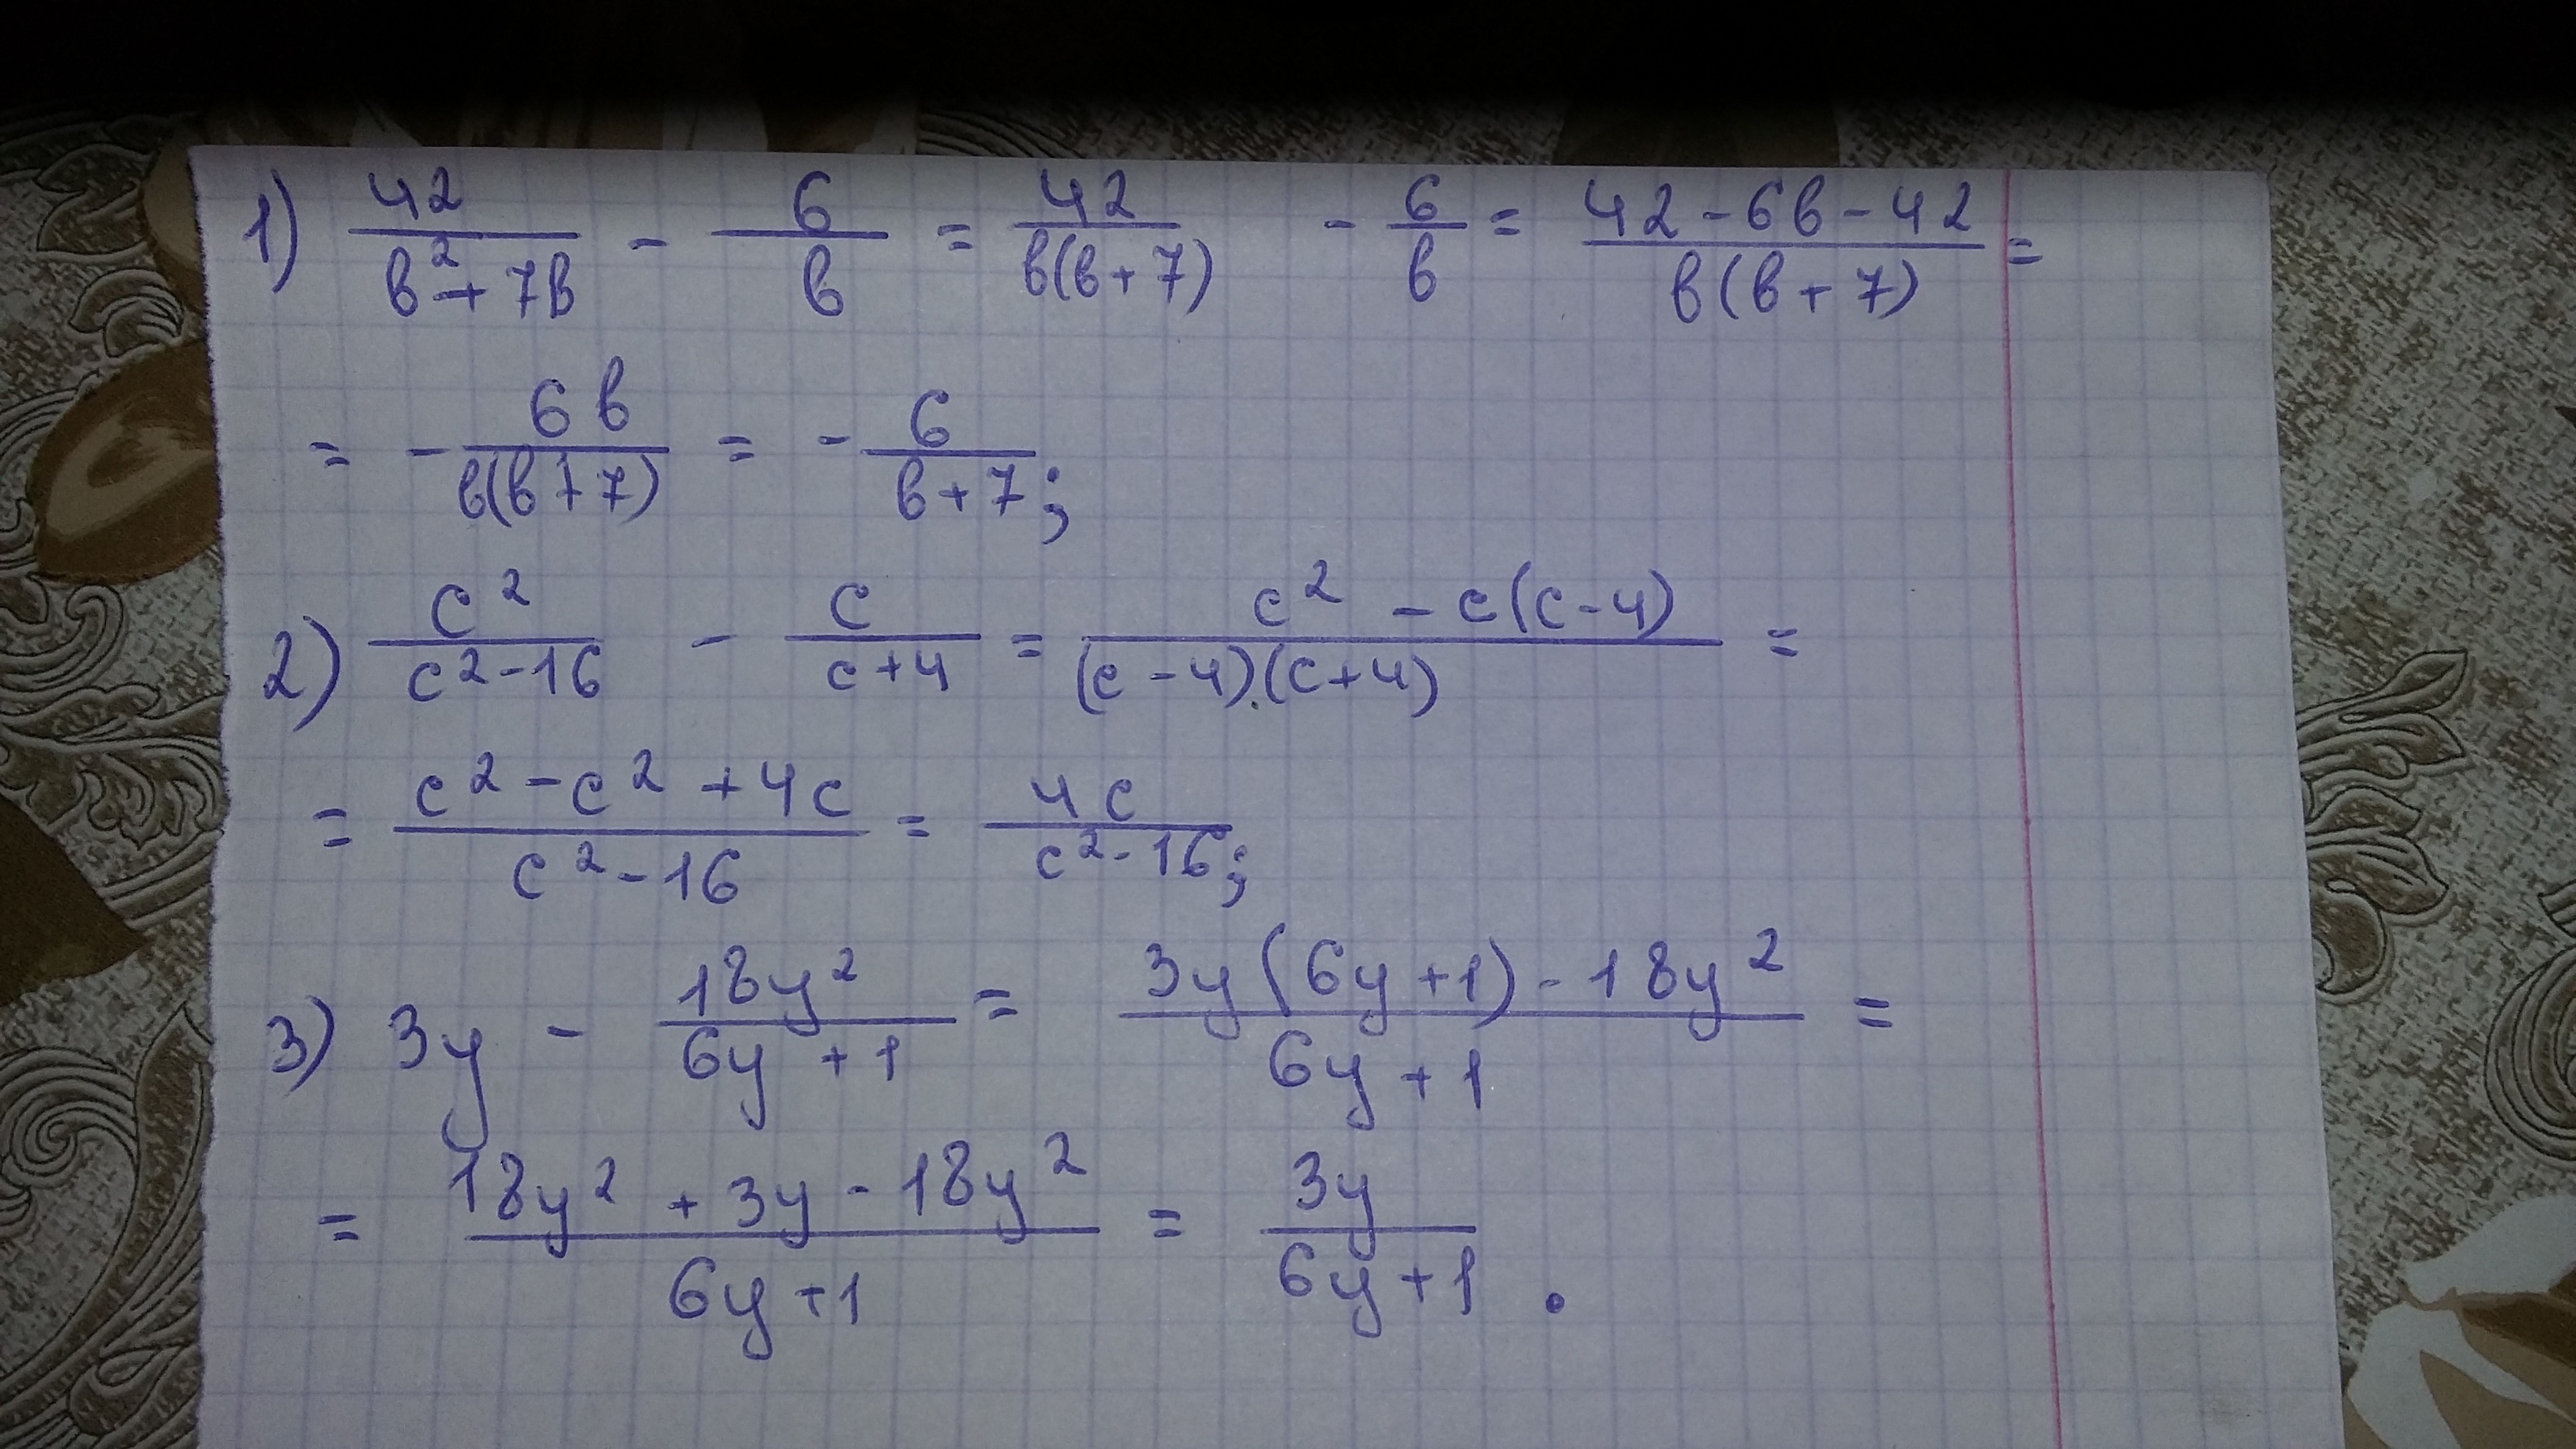 1) 42/(в²+7в) - 6/в = 42/(в(в+7)) - 6/в = (42-6в-42)/(в(в+7)) =
= - 6в/(в(в+7)) = - 6/(в+7);
2) c²/(c²-16) - c/(c+4) = (c² - c(c-4))/((c-4)·(c+4)) =
= (c²-c²+4c)/(c²-16) = 4c/(c²-16);
3) 3y - 18y²/(6y+1) = (3y(6y+1)-18y²)/(6y+1) =
= (18y²+3y-18y²)/(6y+1) = 3y/(6y+1).